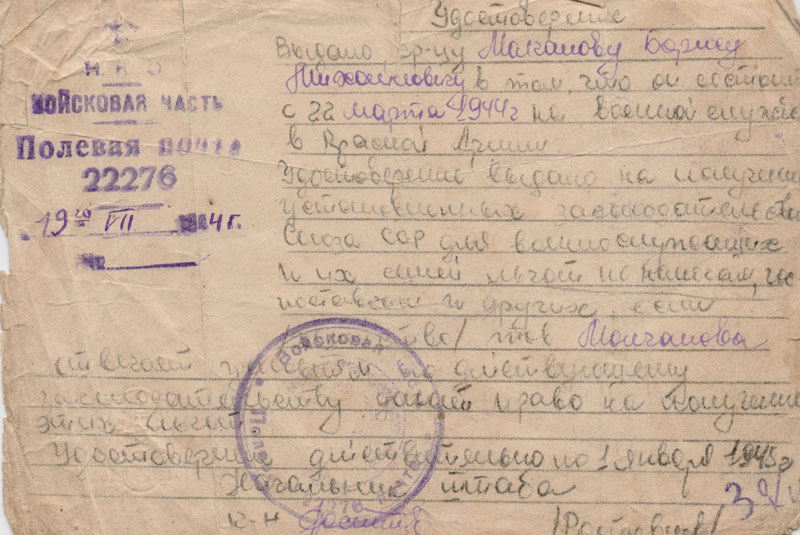 Н К О
ВОЙСКОВАЯ ЧАСТЬ
Полевая почта
22276
19 го VII 194 4 г.
№
Удостоверение
Выдано кр-цу Молчанову Борису
Михайловичу в том, что он состоит
с 22 марта 1944 г на военной службе
в Красной Армии
Удостоверение выдано на получение
установленных законодательством
Союза ССР для военнослужащих
и их семей льгот по налогам, гос
поставкам и других, если
тво/ тов Молчанова
отвечает условиям по действующему
законодательству дающим право на получение
этих льгот
Удостоверение действительно по 1 января 1945 г
Начальник штаба
к-н /Ростовцев/
Войсковая часть
Полевая почта
22276